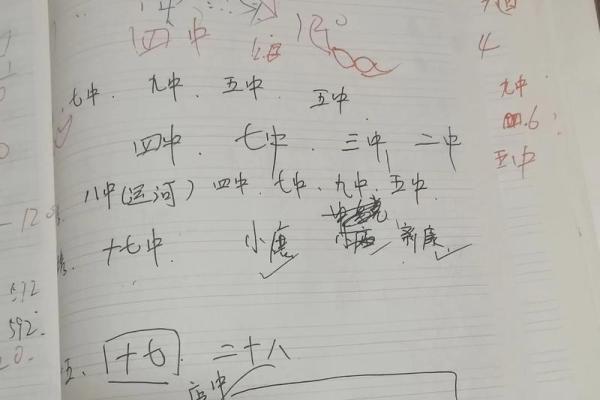 四中
4
七中. 九中. 五中. 五中
九中
四.6
五中
四中. 七中. 三中, 二中
八中(运河) 四中. 七中. 九中. 五中.
-120
十七中. 小康 新康
592
592.
20.
五、十七. 二十八
店中